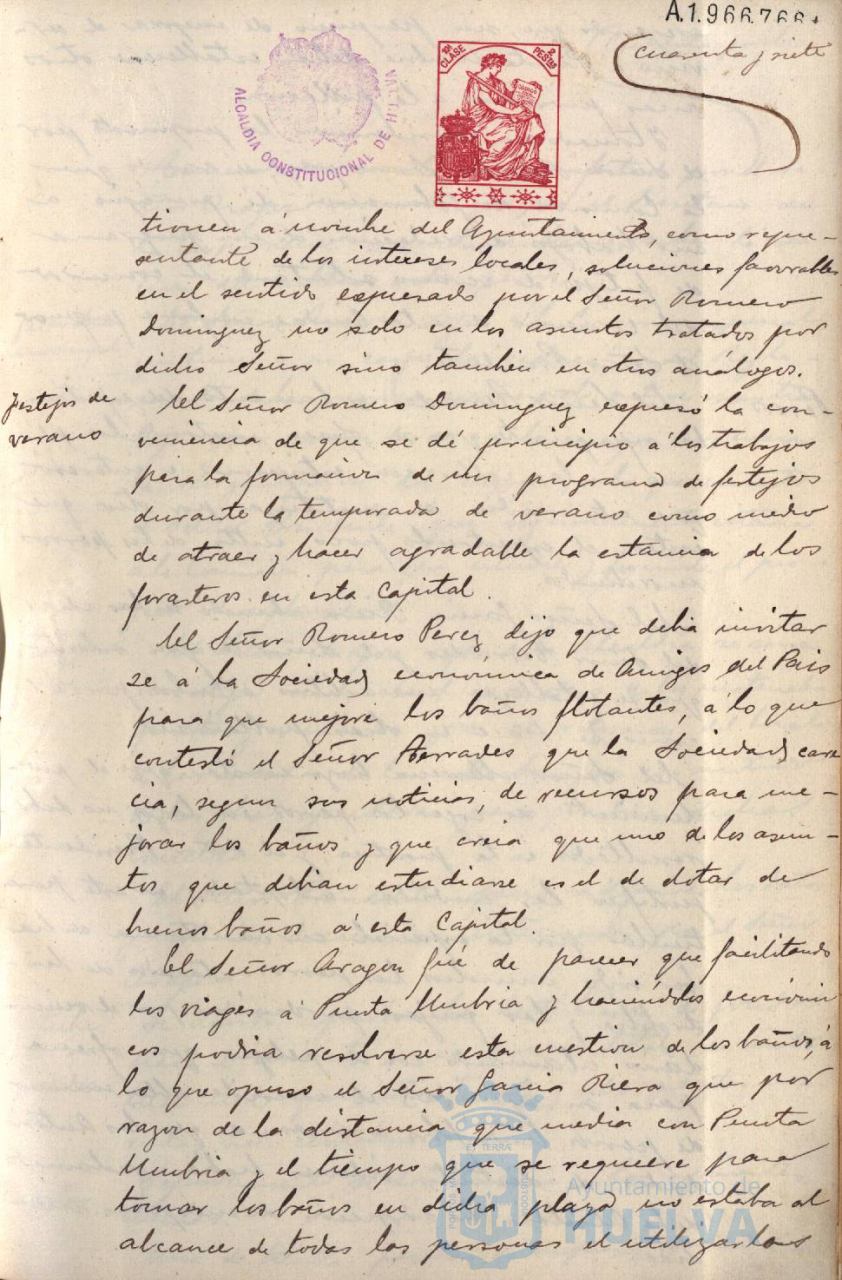 A.1.966.766
cuarenta y siete
ALCALDIA CONSTITUCIONAL DE HUELVA
CLASE
2 PESTAS
tionen á nombre del Ayuntamiento, como repre-
sentante de los intereses locales, soluciones favorables
en el sentido expresado por el Señor Romero
Dominguez no solo en los asuntos tratados por
dicho Señor sino tambien en otros análogos.
Festejos de
verano
El Señor Romero Dominguez expresó la con-
veniencia de que se dé principio á los trabajos
para la formacion de un programa de festejos
durante la temporada de verano como medio
de atraer y hacer agradable la estancia de los
forasteros en esta Capital.
El Señor Romero Perez dijo que debia invitar
se á la Sociedad económica de Amigos del Pais
para que mejore los baños flotantes, á lo que
contestó el Señor que la Sociedad care
cia, segun sus noticias, de recursos para me-
jorar los baños y que creia que uno de los asun-
tos que debian estudiarse es el de dotar de
buenos baños á esta Capital.
El Señor Aragon fué de parecer que facilitando
los viages á Punta Umbria y haciéndolos económi
cos podria resolverse esta cuestion de los baños, á
lo que opuso el Señor Garcia Riera que por
razon de la distancia que media con Punta
Umbria y el tiempo que se requiere para
tomar los baños en dicha playa no estaba al
alcance de todas las personas el utilizarlos
Ayuntamiento de
HUELVA